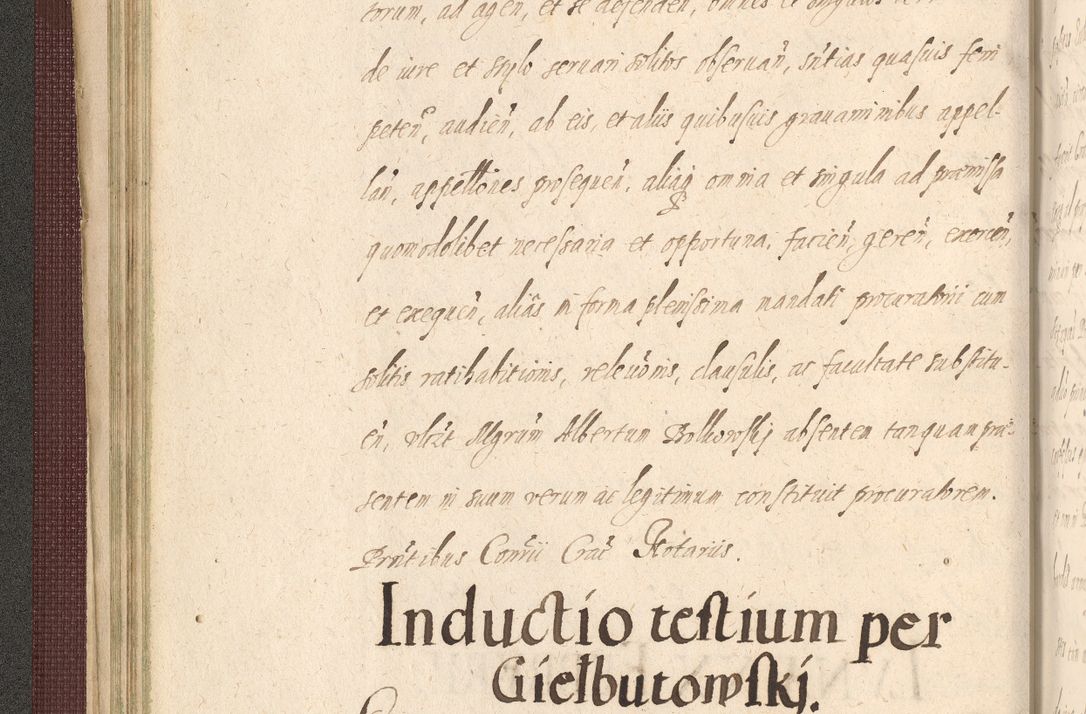 torum, ad agen̄, et se defenden̄, omnes et singulos
de iure et stylo seruari solitos obseruan̄, sn̄tias quasuis ferri
peten̄, audien̄, ab eis, et aliis quibusuis grauaminibus appel-
lan̄, appellōnes prosequen̄, aliaq̄ omnia et singula ad præmissa
quomodolibet necessaria et opportuna, facien̄, geren̄, exercen̄,
et exequen̄, aliâs in forma plenissima mandati procuratorii cum
solitis ratihabitionis, releuōnis, clausulis, ac facultate substitu-
en̄, Mgrum̄ Albertum absentem tanquam præ-
sentem in suum verum ac legitimum constituit procuratorem.
Prn̄tibus Conr̄ii Crac̄ Notariis.
Inductio testium per
Giełbutowskj.